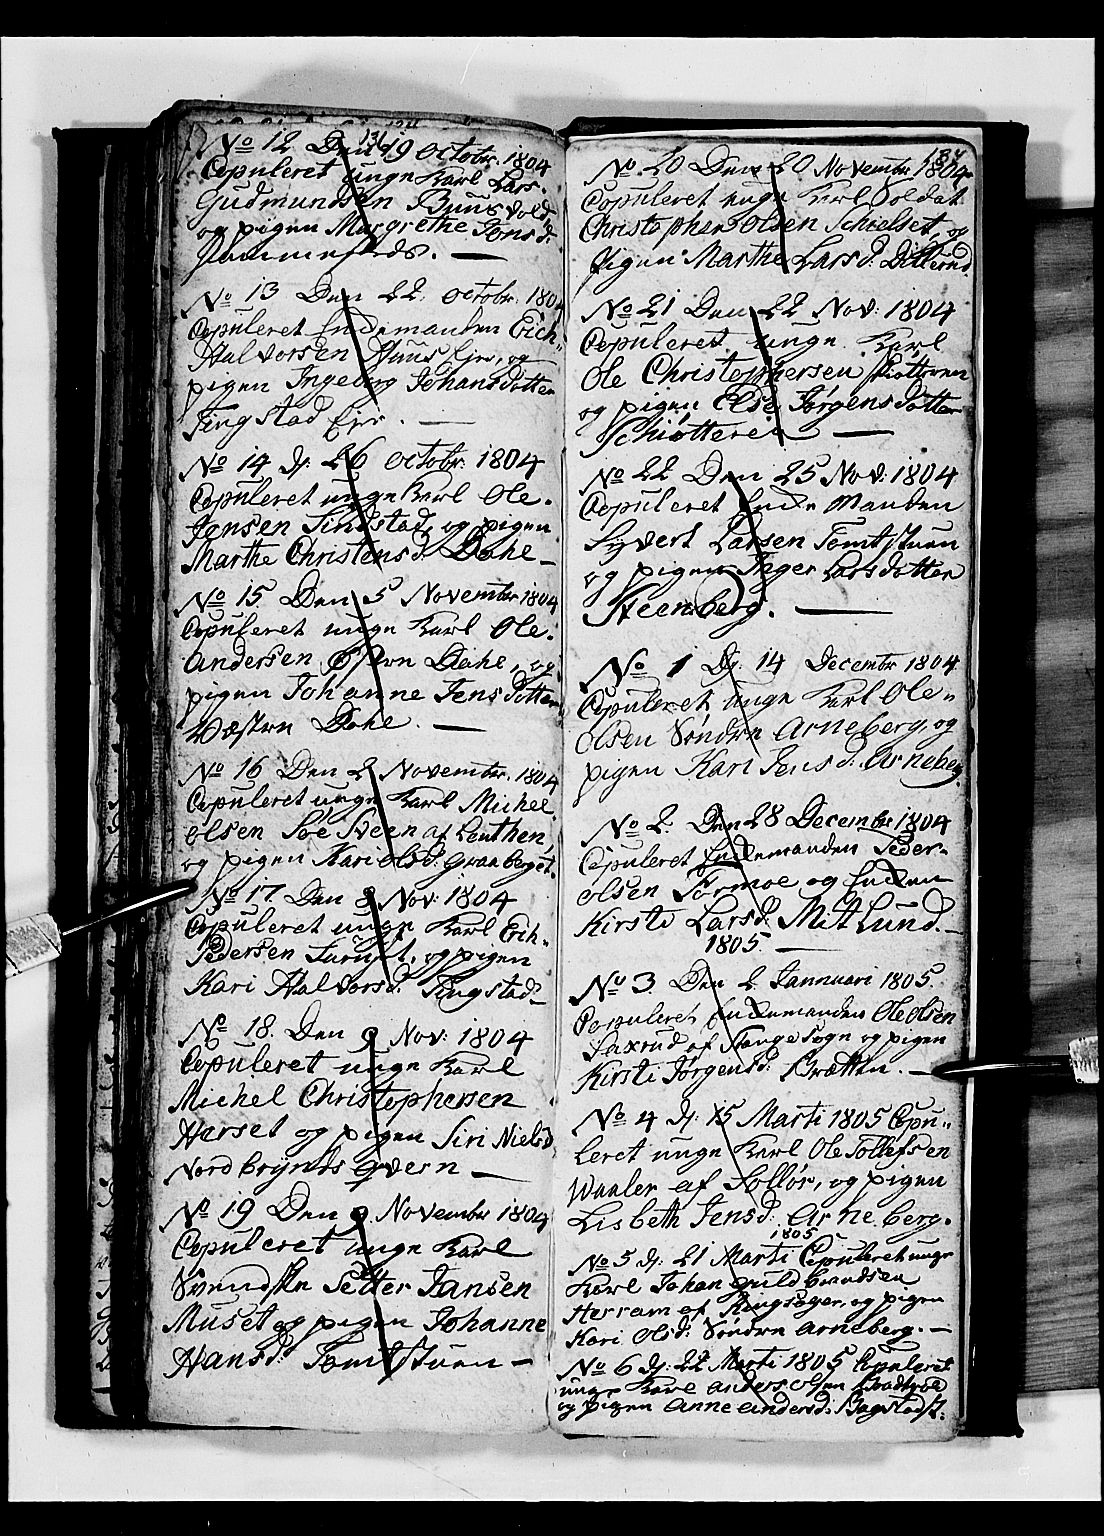 131
No 12 Den 19 Octobr. 1804
Copuleret unge Karl Lars
Gudmundsen Buusvold
og pigen Margrethe Jonsd:
No 13 Den 22. Octobr. 1804
Copuleret Enckemanden Erich
Halvorsen Huus Eje, og
pigen Ingeborg Johansdotter
Tingstad Eje.
No 14 d: 26 Octobr. 1804
Copuleret unge Karl Ole
Jensen Sindstad, og pigen
Marthe Christensd. Dahe
No 15. Den 5 Novembr 1804
Copuleret unge Karl Ole
Andersen Østre Dahe, og
pigen Johanne Jens Dotter
Væstre Dahe.
No 16 Den 2 November. 1804
Copuleret unge Karl Michel
Olsen Søe Sveen af Leuthen,
og pigen Kari Olsd: Graaberget.
No 17. Den 8 Nov: 1804
Copuleret unge Karl Erich
Pedersen og pigen
Kari Halvorsd. Tingstad
No 18. Den 9 Nov: 1804
Copuleret unge Karl
Michel Christophersen
Herset og pigen Siri Nielsd
Nordbrynds qvern
No 19 Den 9. November 1804
Copuleret unge Karl
Svend Petter Jansen
Muset og pigen Johanne
Hansd: Tomtstuen
134
No. 20 Den 20 Novembr 1804
Copuleret unge Karl Soldat
Christopher Olsen Schielset, og
Pigen Marthe Larsd: Ditterud
No 21 Den 22 Nov: 1804
Copuleret unge Karl
Ole Christophersen Skiøtteren
og pigen Else Jørgensdotter
Schiøtteren
No 22 Den 25 Nov. 1804
Copuleret Encke Manden
Syvert Larsen Tomtstuen
og pigen Inger Larsdotter
Steenberg.
No 1 D: 14 Decembr 1804.
Copuleret unge Karl Ole
Olsen Søndre Arneberg, og
pigen Kari Jensd: Arneberg.
No 2. Den 28 Decembr 1804
Copuleret Enckemanden Peder
Olsen Formoe og Encken
Kirsti Larsd: MitLund.
1805
No 3. Den 2 Jannuari 1805.
Copuleret Enckemanden Ole Olsen
Saxrud af Stange Sogn og pigen
Kirsti Jørgensd: Bratten.
No 4 d: 15 Marti 1805 Copu
leret unge Karl Ole Tollefsen
Waaler af Solløer, og pigen
Lisbeth Jensd: Arneberg.
1805
No 5 d: 21 Marti Copuleret unge
Karl Johan Guldbrandsen
Herram af Ringsager, og pigen
Kari Olsd: Søndre Arneberg.
No 6 d: 22 Marti 1805 Copuleret
unge Karl Anders Olsen
og pigen Anne Andersd: Bagstad